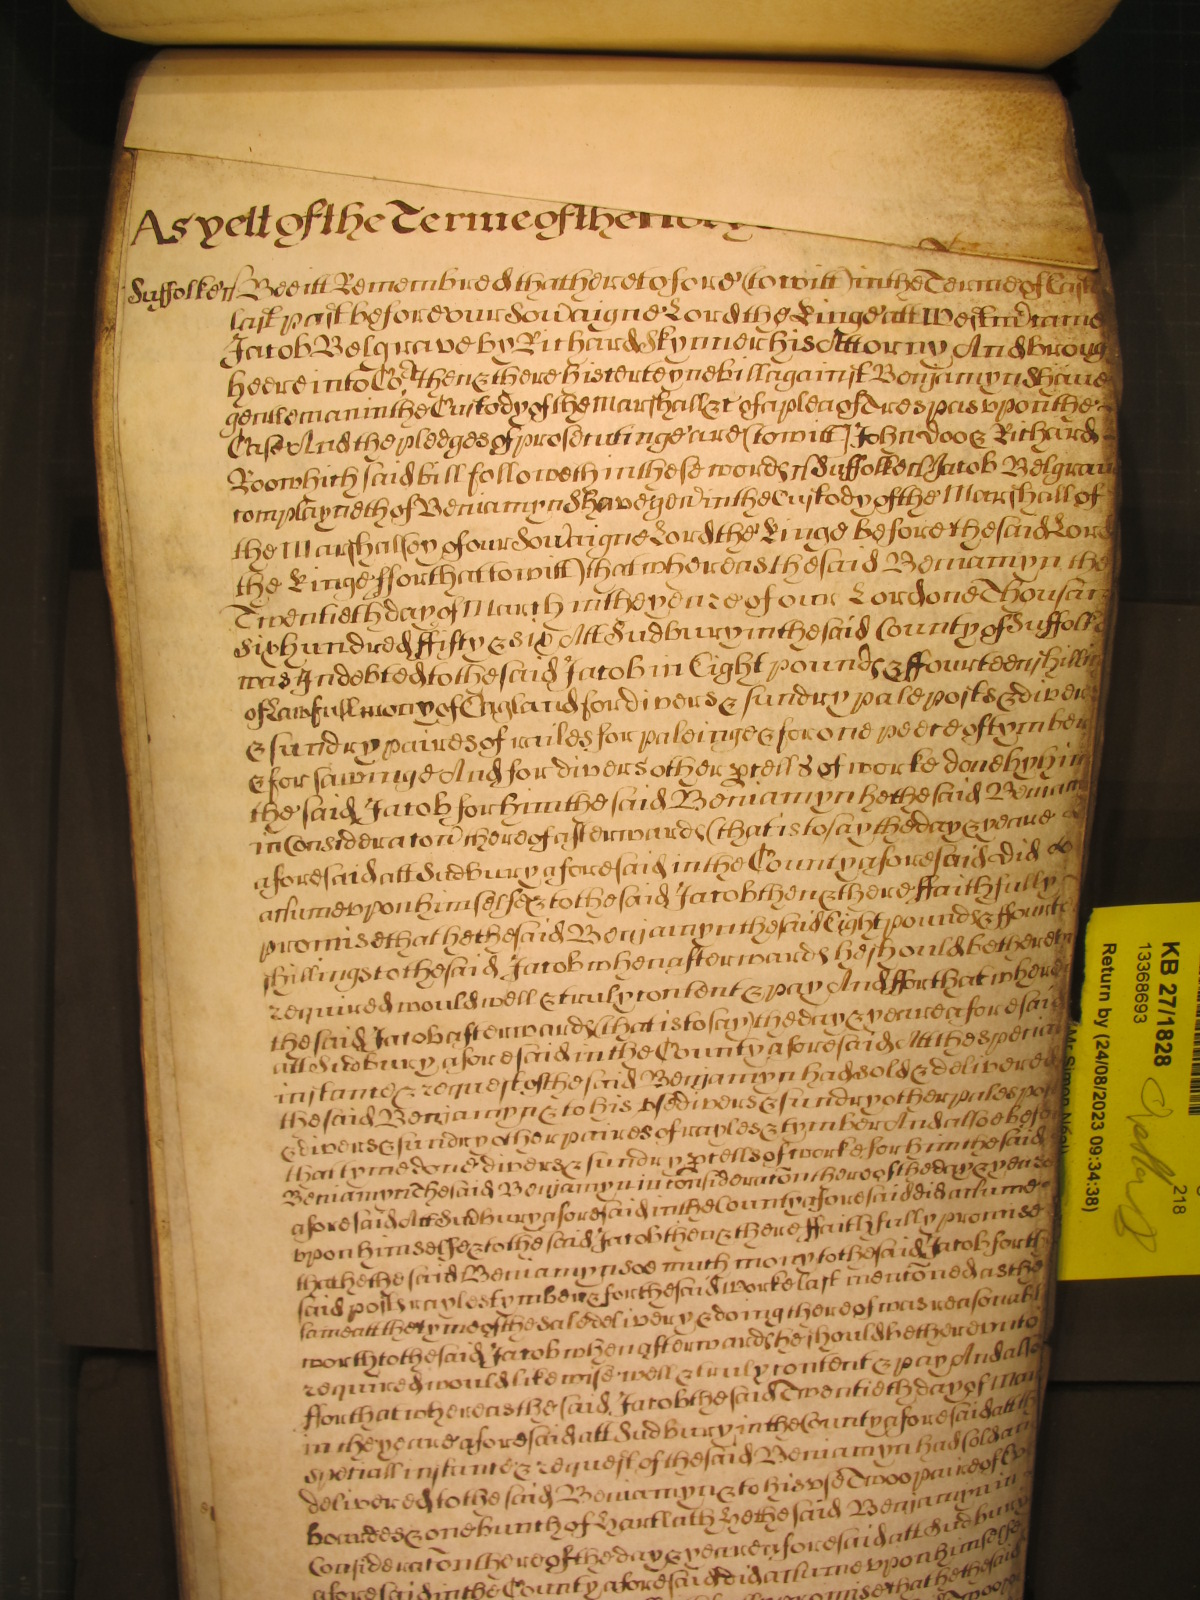 As yett of the Terme of the
Suffolke ss Bee itt Remembred that heretofore (to witt) in the Terme of
last past before our Sovaigne Lord the Kinge att Westm came
Jacob Belgrave by Richard Skynner his Attorny And broug
heere into Co then & there his certeyne bill against Benjamyn Shave
gentleman in the Custody of the Marshall &c of a plea of Trespas upon the
Case And the pledges of prosecutinge are (to witt) John Doo & Richard
Roo which said bill followeth in these words ss Suffolke ss Jacob Belgrave
complayneth of Beniamyn Shave gen in the Custody of the Marshall of
the Marshalsey of our Sovaigne Lord the Kinge before the said Lord
the Kinge ffor that (to witt) that whereas the said Beniamyn the
Twentieth day of March in the yeare of our Lord one Thousan
six hundred ffifty & six Att Sudbury in the said County of Suffolk
was Indebted to the said Jacob in Eight pounds & ffourteen shilling
of Lawfull mony of England for divers & sundry pale posts & divers
& sundry paires of railes for paleinge & for one peece of tymber
& for sawinge And for divers other pcells of worke done by him
the said Jacob for him the said Beniamyn he the said Beniam
in Consideracon thereof afterwards (that is to say the day & yeare
aforesaid att Sudbury aforesaid in the County aforesaid did
assume upon himselfe & to the said Jacob then & there ffaithfully
promise that he the said Benjamyn the said Eight pounds & ffourte
shillings to the said Jacob when afterwards he should be thereun
required would well & truly content & pay And ffor that where
the said Jacob afterwards (that is to say) the day & yeare aforesaid
att Sudbury aforesaid in the County aforesaid Att the speciall
instance & request of the said Benjamyn had sold & delivered
the said Benjamyn & to his use divers & sundry other pales post
& divers & sundry other paires of rayles & tymber And alsoe before
that tyme done divers & sundry pcells of worke for him the said
Beniamyn the said Benjamyn in consideracon thereof the day & yeare
aforesaid Att Sudbury aforesaid in the County aforesaid did assume
upon himselfe & to the said Jacob then & there ffaithfully promise
that he the said Beniamyn soe much mony to the said Jacob for th
said posts rayles tymber & for the said worke last menconed as the
same att the tyme of the sale delivery & doing thereof was reasonabl
worth to the said Jacob when afterwards he should be thereunto
required would likewise well & truly content & pay And also
ffor that whereas the said Jacob the said Twentieth day of Mar
in the yeare aforesaid att Sudbury in the County aforesaid att th
speciall instance & request of the said Beniamyn had sold an
delivered to the said Beniamyn & to his use Twoo paire of
boardes & one bunch of Hartlath he the said Benjamyn in
Consideracon thereof the day & yeare aforesaid att Sudbury
aforesaid in the County aforesaid did assume upon himselfe
promise that he the said
KB 27/1828
13368693
Return by (24/08/2023 09:34:38)
218